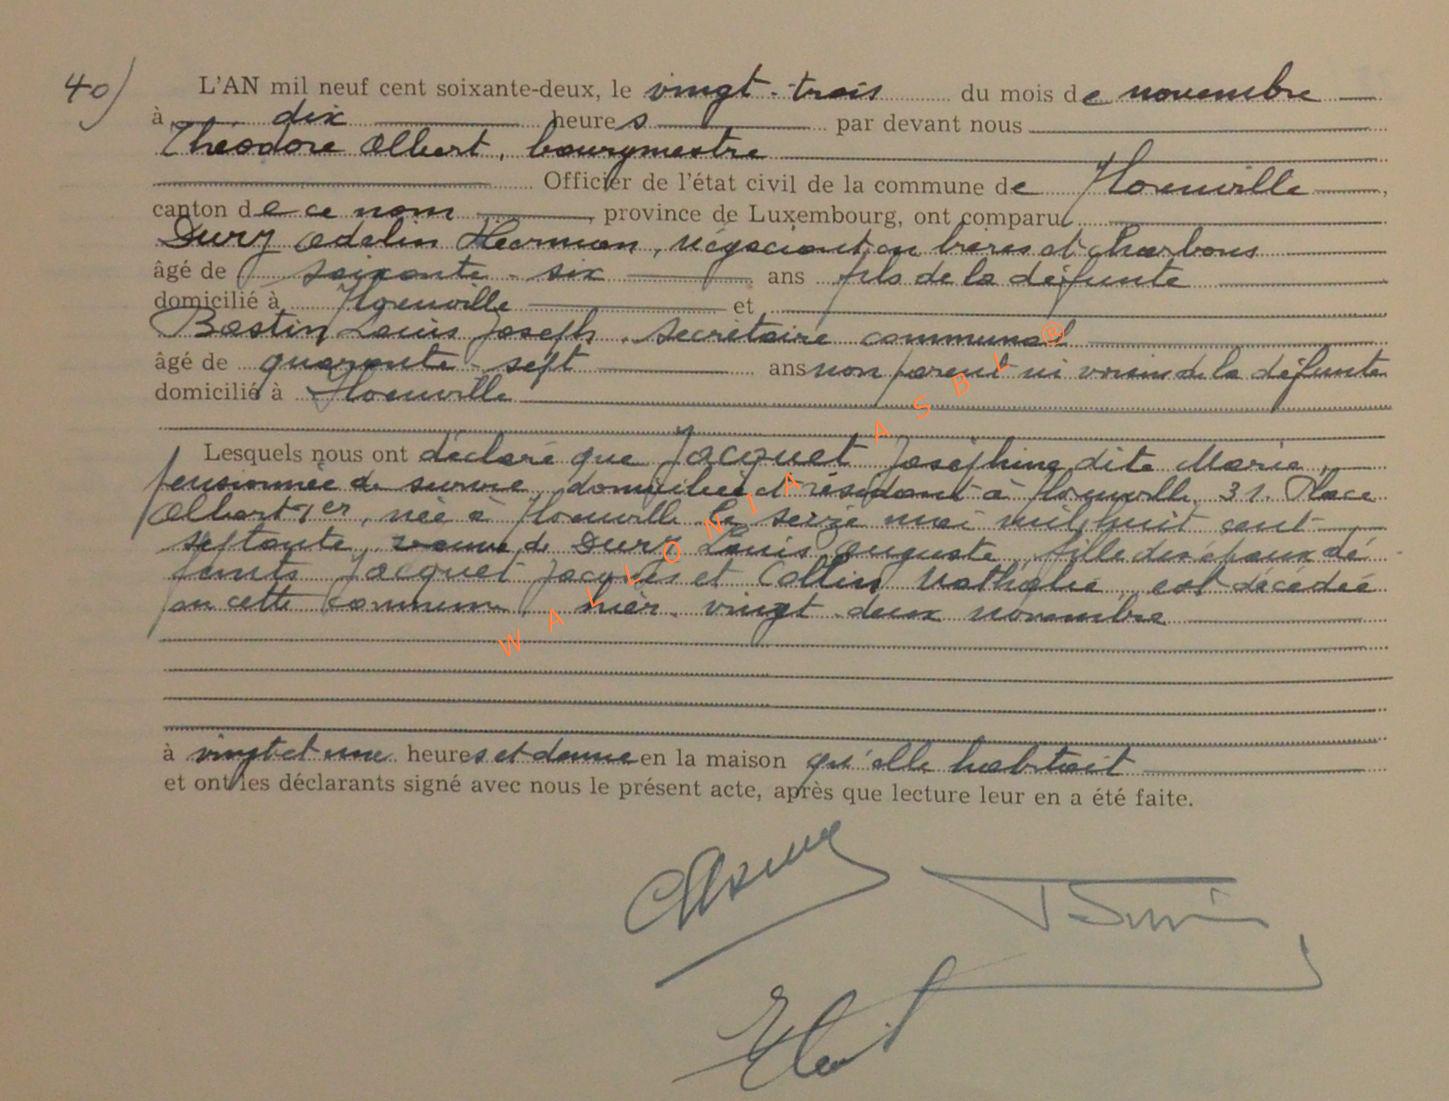 40) L'AN mil neuf cent soixante-deux, le vingt-trois du mois de novembre
à dix heures par devant nous
Théodore Albert, bourgmestre
Officier de l'état civil de la commune de Florenville,
canton de ce nom, province de Luxembourg, ont comparu
Dury Adelin Herman, négociant en bières et charbons
âgé de soixante-six ans fils de la défunte
domicilié à Florenville et
Bastin Louis Joseph, secrétaire communal
âgé de quarante-sept ans non parent ni voisin de la défunte
domicilié à Florenville
Lesquels nous ont déclaré que Jacquet Joséphine dite Maria,
pensionnée de survie, domiciliée et résidant à Florenville, 31. Place
Albert-1er, née à Florenville le seize mai mil huit cent
septante, veuve de Dury Louis Auguste, fille des époux dé
funts Jacquet Jacques et Collin Nathalie, est décédée
en cette commune, hier vingt-deux novembre
à vingt et une heures et demie en la maison qu'elle habitait
et ont les déclarants signé avec nous le présent acte, après que lecture leur en a été faite.
WALLONIA ASBL®